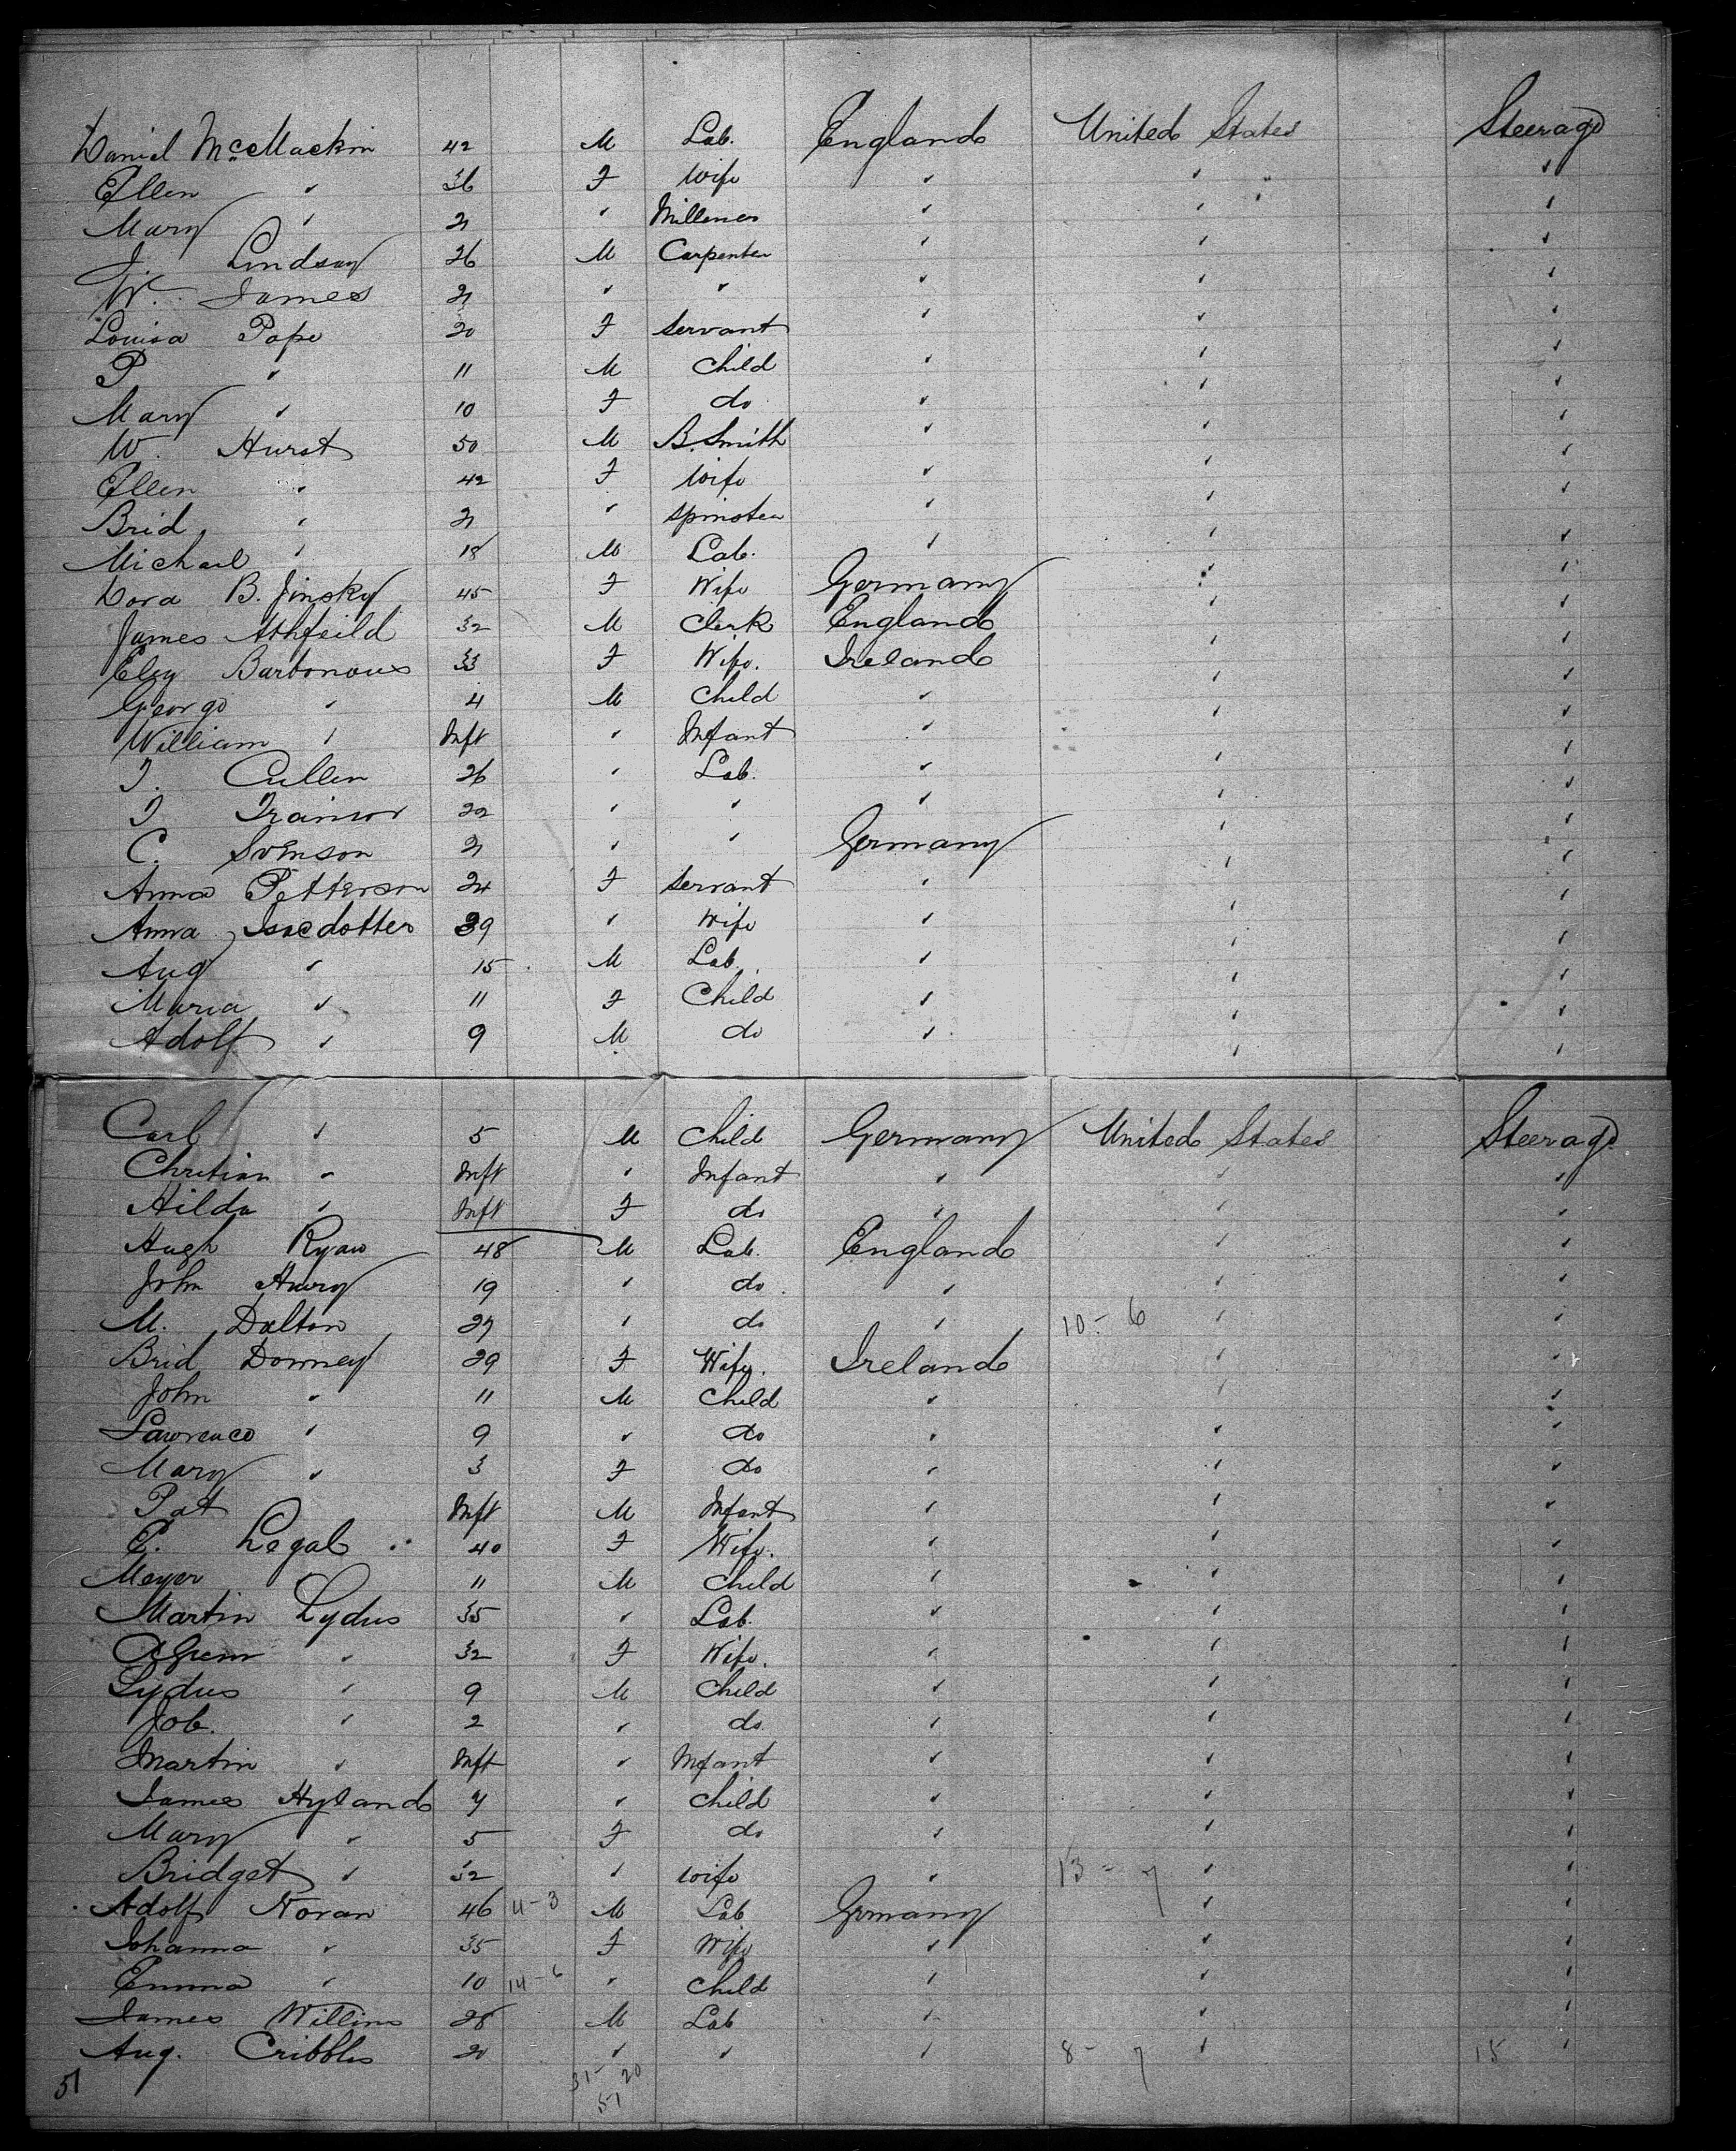 Daniel McMackin 42 M Lab. England United States Steerage
Ellen " 36 F Wife " " "
Mary " 21 " Milliner " " "
J. Lindsay 26 M Carpenter " " "
W. James 21 " " " " "
Louisa Pope 20 F Servant " " "
P " 11 M Child " " "
Mary " 10 F do " " "
W. Hurst 50 M B. Smith " " "
Ellen " 42 F Wife " " "
Brid " 21 " Spinster " " "
Michael " 18 M Lab. " " "
Dora B. Jinsky 45 F Wife Germany " "
James Athfeild 32 M Clerk England " "
Elzy Barbonous 33 F Wife. Ireland " "
George " 4 M Child " " "
William " Inft " Infant " " "
T. Cullen 26 " Lab. " " "
T Trainor 22 " " " " "
C. Svenson 21 " " Germany " "
Anna Petterson 24 F Servant " " "
Anna Isacdotter 39 " Wife " " "
Aug " 15 M Lab. " " "
Maria " 11 F Child " " "
Adolf " 9 M do " " "
Carl " 5 M Child Germany United States Steerage
Chritian " Inft " Infant " " "
Hilda " Inft F do " " "
Hugh Ryan 48 M Lab. England " "
John Avery 19 " do " " "
M. Dalton 27 " do " 10-6 " "
Brid Downey 29 F Wife. Ireland " "
John " 11 M Child " " "
Lawrence " 9 " do " " "
Mary " 3 F do " " "
Pat " Inft M Infant " " "
C. Legal 40 F Wife. " " "
Meyer " 11 M Child " " "
Martin Lydus 35 " Lab. " " "
" 32 F Wife. " " "
Lydus " 9 M Child " " "
Job. " 2 " do " " "
Martin " Inft " Infant " " "
James Hyland 7 " Child " " "
Mary " 5 F do " " "
Bridget " 32 " Wife " 13-7 " "
Adolf Noran 46 11-3 M Lab Germany " "
Johanna " 35 F Wife " " "
Emma " 10 14-6 " Child " " "
James Willims 28 M Lab " " "
Aug. Cribbles 20 " " " 8-7 " 15 "
51 31-20
51